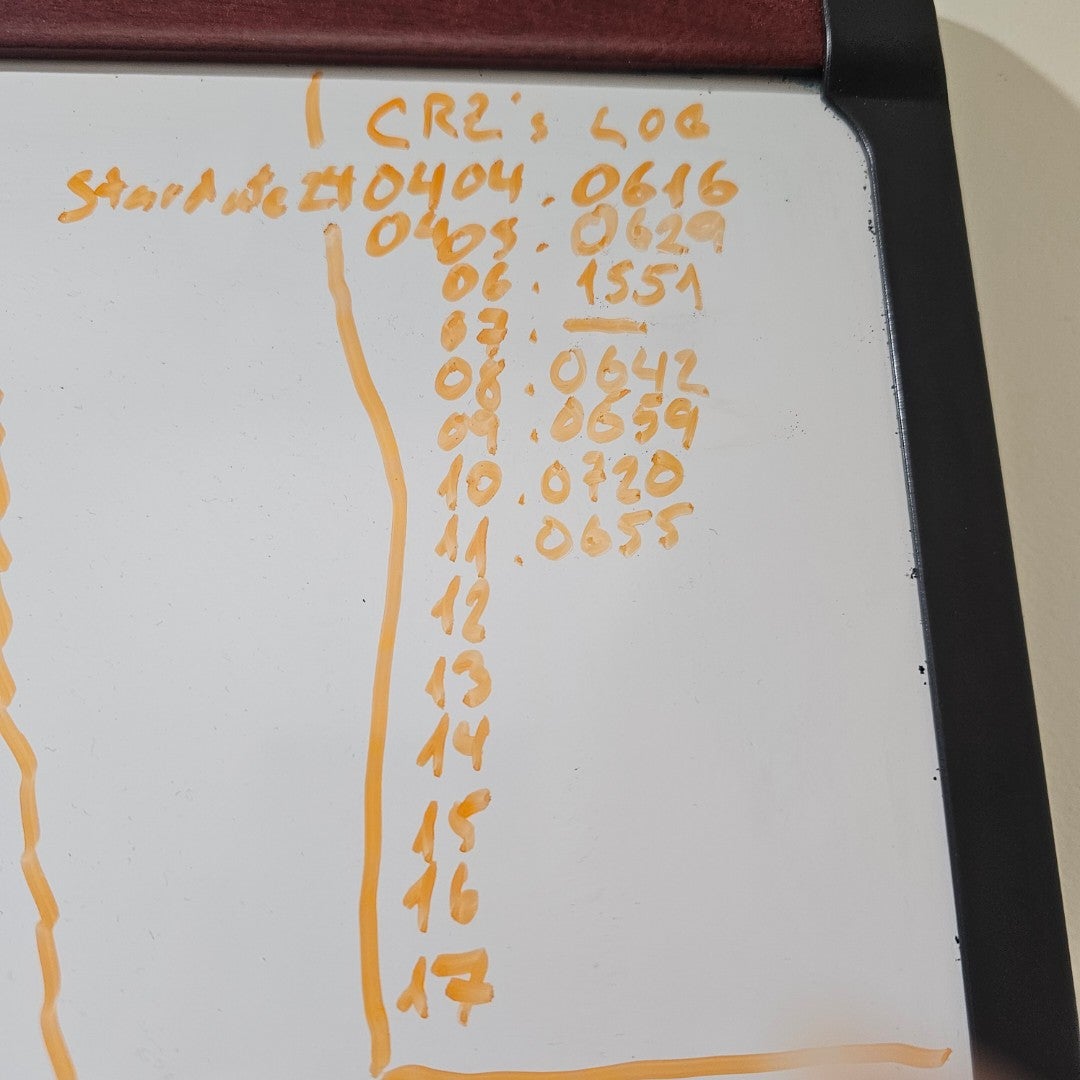 CRZ's LOG
Stardate 240404.0616
0405.0629
06.1551
07.—
08.0642
09.0659
10.0720
11.0655
12
13
14
15
16
17